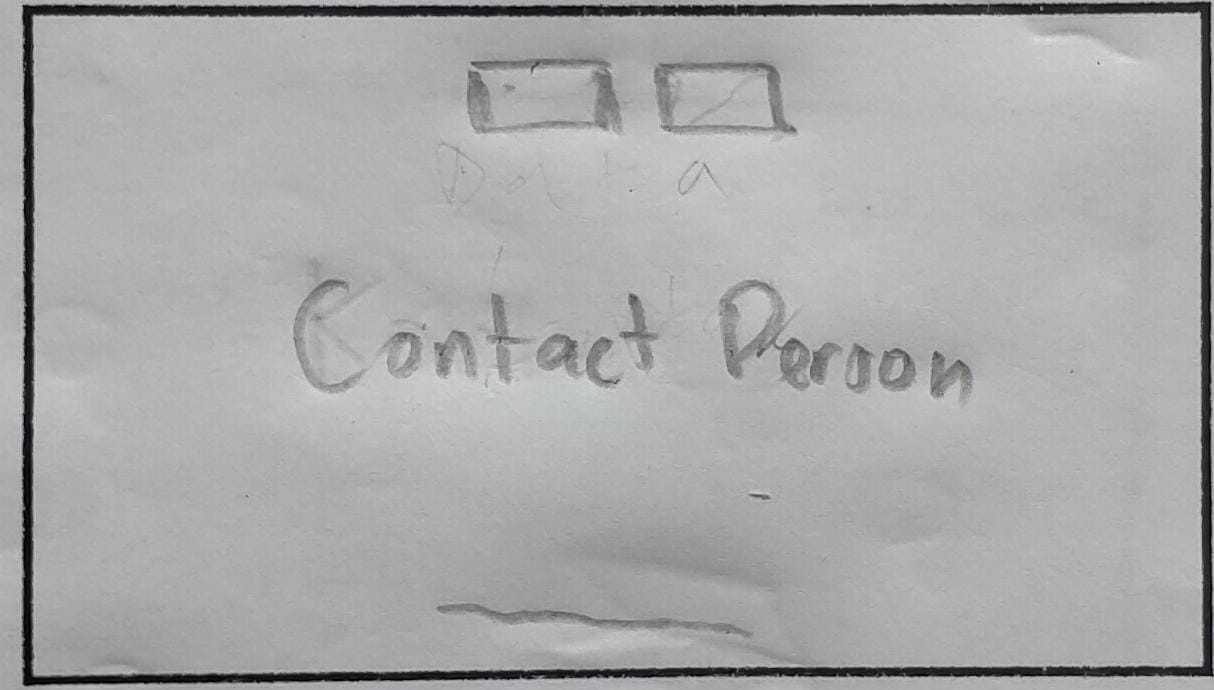 Data
Contact Person